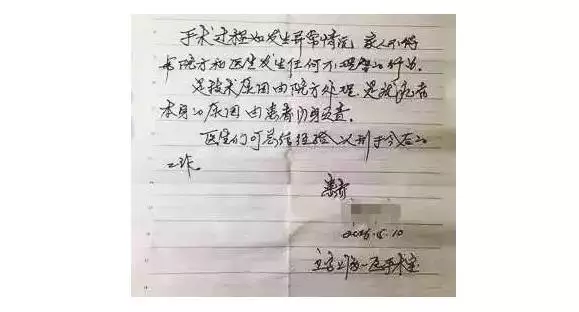 手术过程如发生异常情况 家人不得
与院方和医生发生任何不理智的行为.
是技术原因由院方处理, 是患者
本身的原因 由患者自身负责.
医生们可总结经验以利于今后的
工作。
患者
手术室